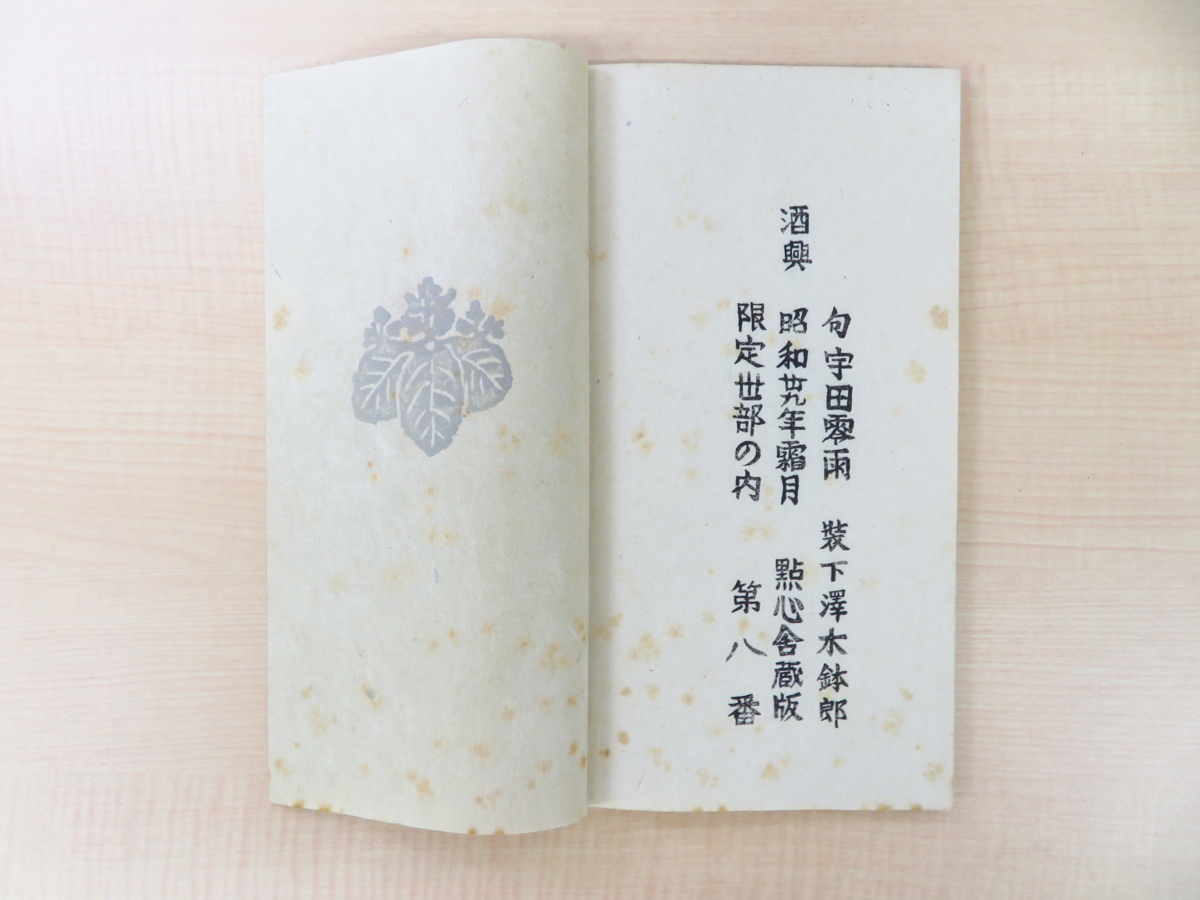 句宇田零雨　装下澤木鉢郎
酒興　昭和廿九年霜月　點心舎蔵版
限定丗部の内　第八番